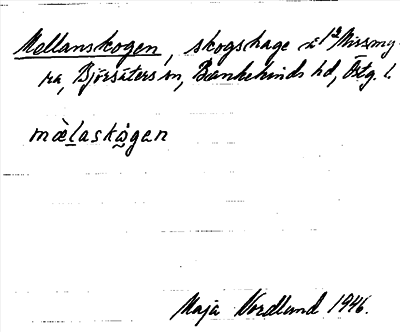 Mellanskogen, skogshage å 1ª Missmy-
ra, Björsäters sn, Bankekinds hd, Östg. l.
mæ̀laskò̤gen
Maja Nordlund 1946.